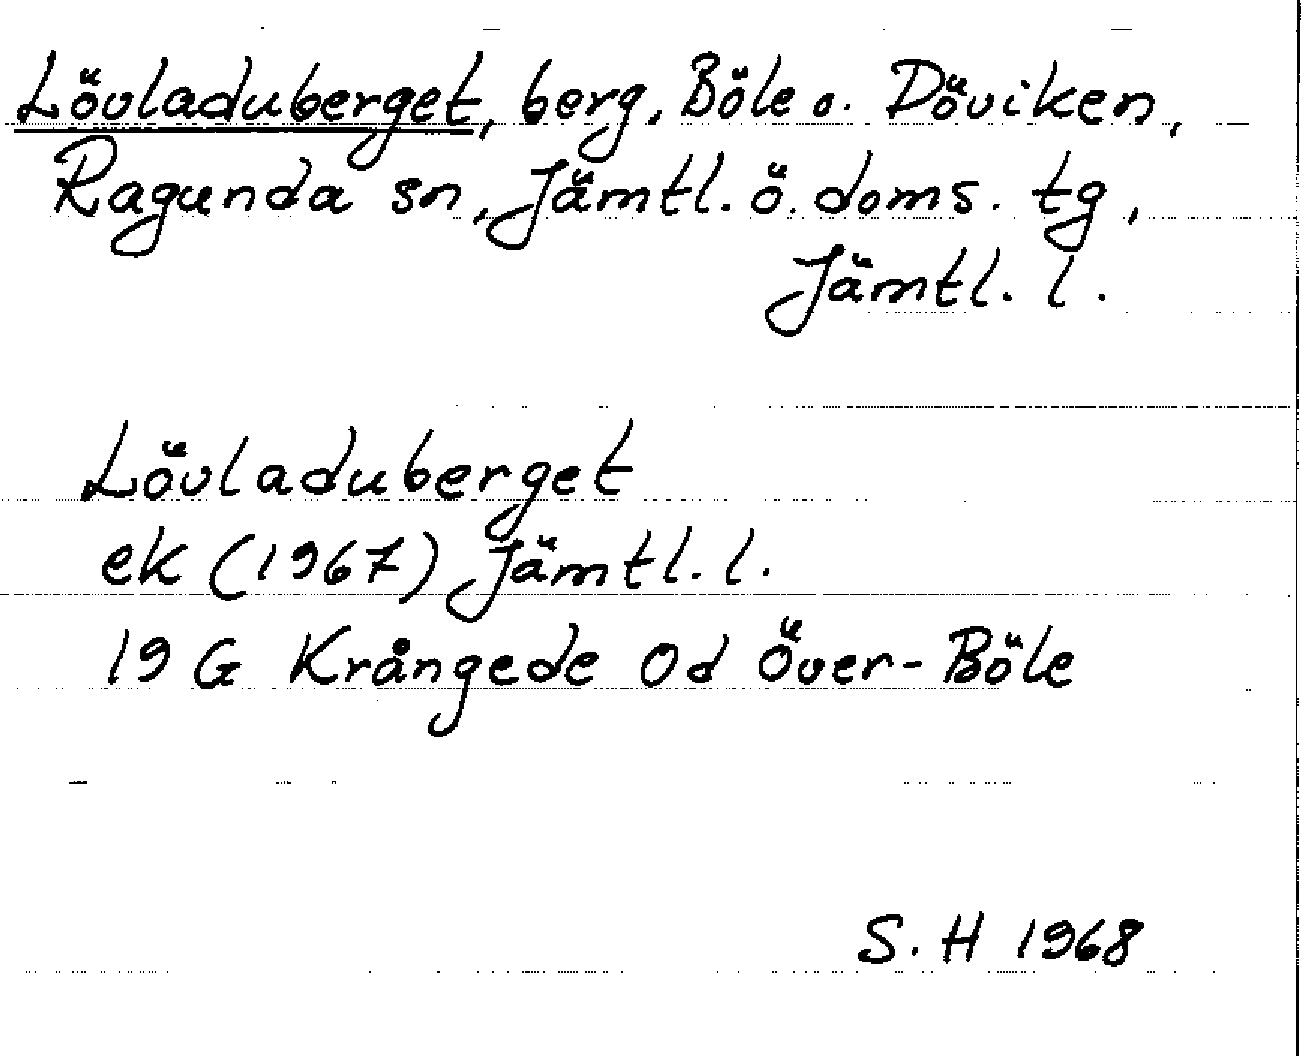 Lövladuberget, berg, Böle o. Döviken,
Ragunda sn, Jämtl. ö. doms. tg,
Jämtl. l.
Lövladuberget
ek (1967) Jämtl. l.
19 G Krångede 0d Över-Böle
S. H 1968